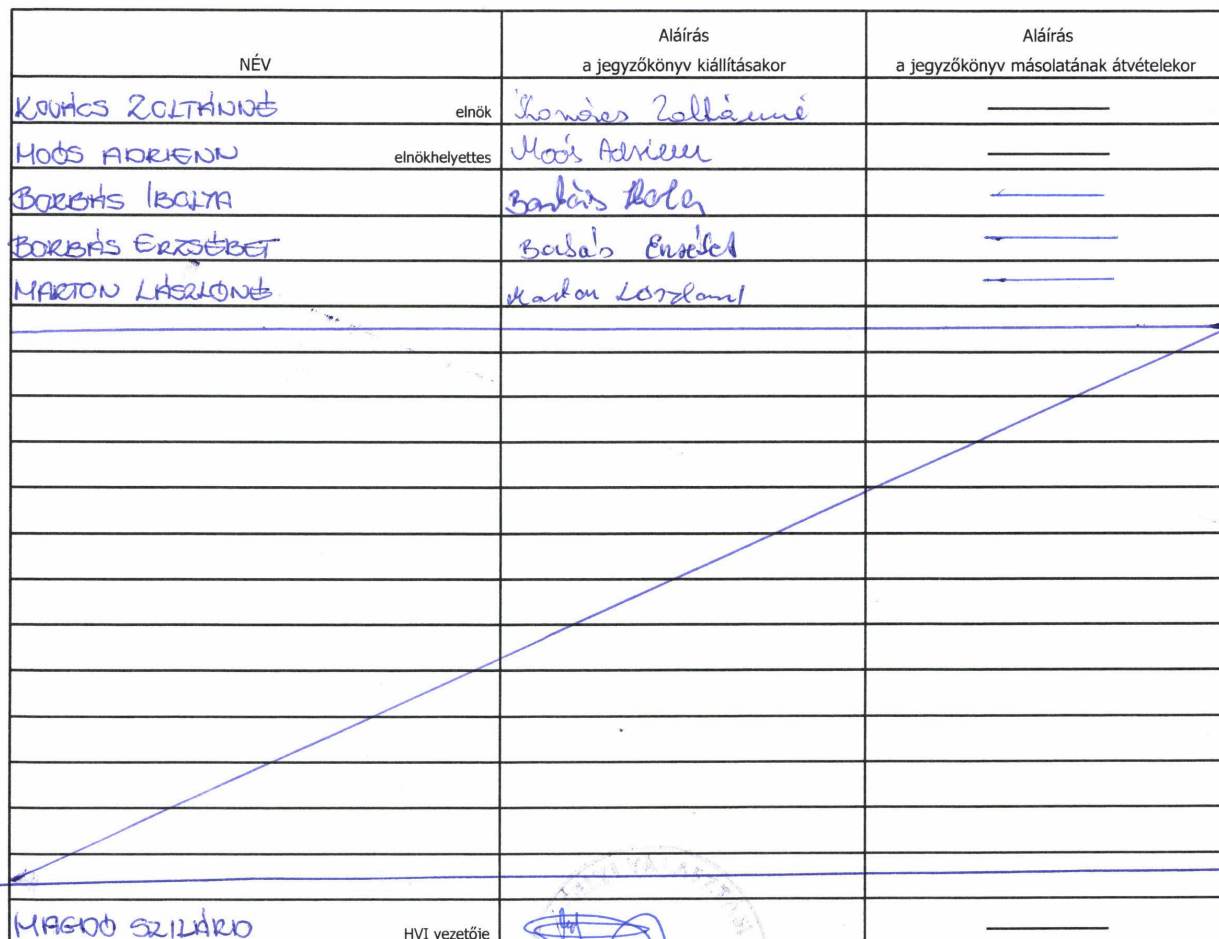 NÉV
Aláírás
a jegyzőkönyv kiállításakor
Aláírás
a jegyzőkönyv másolatának átvételekor
KOVÁCS ZOLTÁNNÉ elnök Kovács Zoltánné
MOÓS ADRIENN elnökhelyettes Moós Adrienn
BORBÁS IBOLYA Borbás Ibolya
BORBÁS ERZSÉBET Borbás Erzsébet
MARTON LÁSZLÓNÉ Marton Lászlóné
HELYI VÁLASZTÁSI
MAGDÓ SZILÁRD HVI vezetője